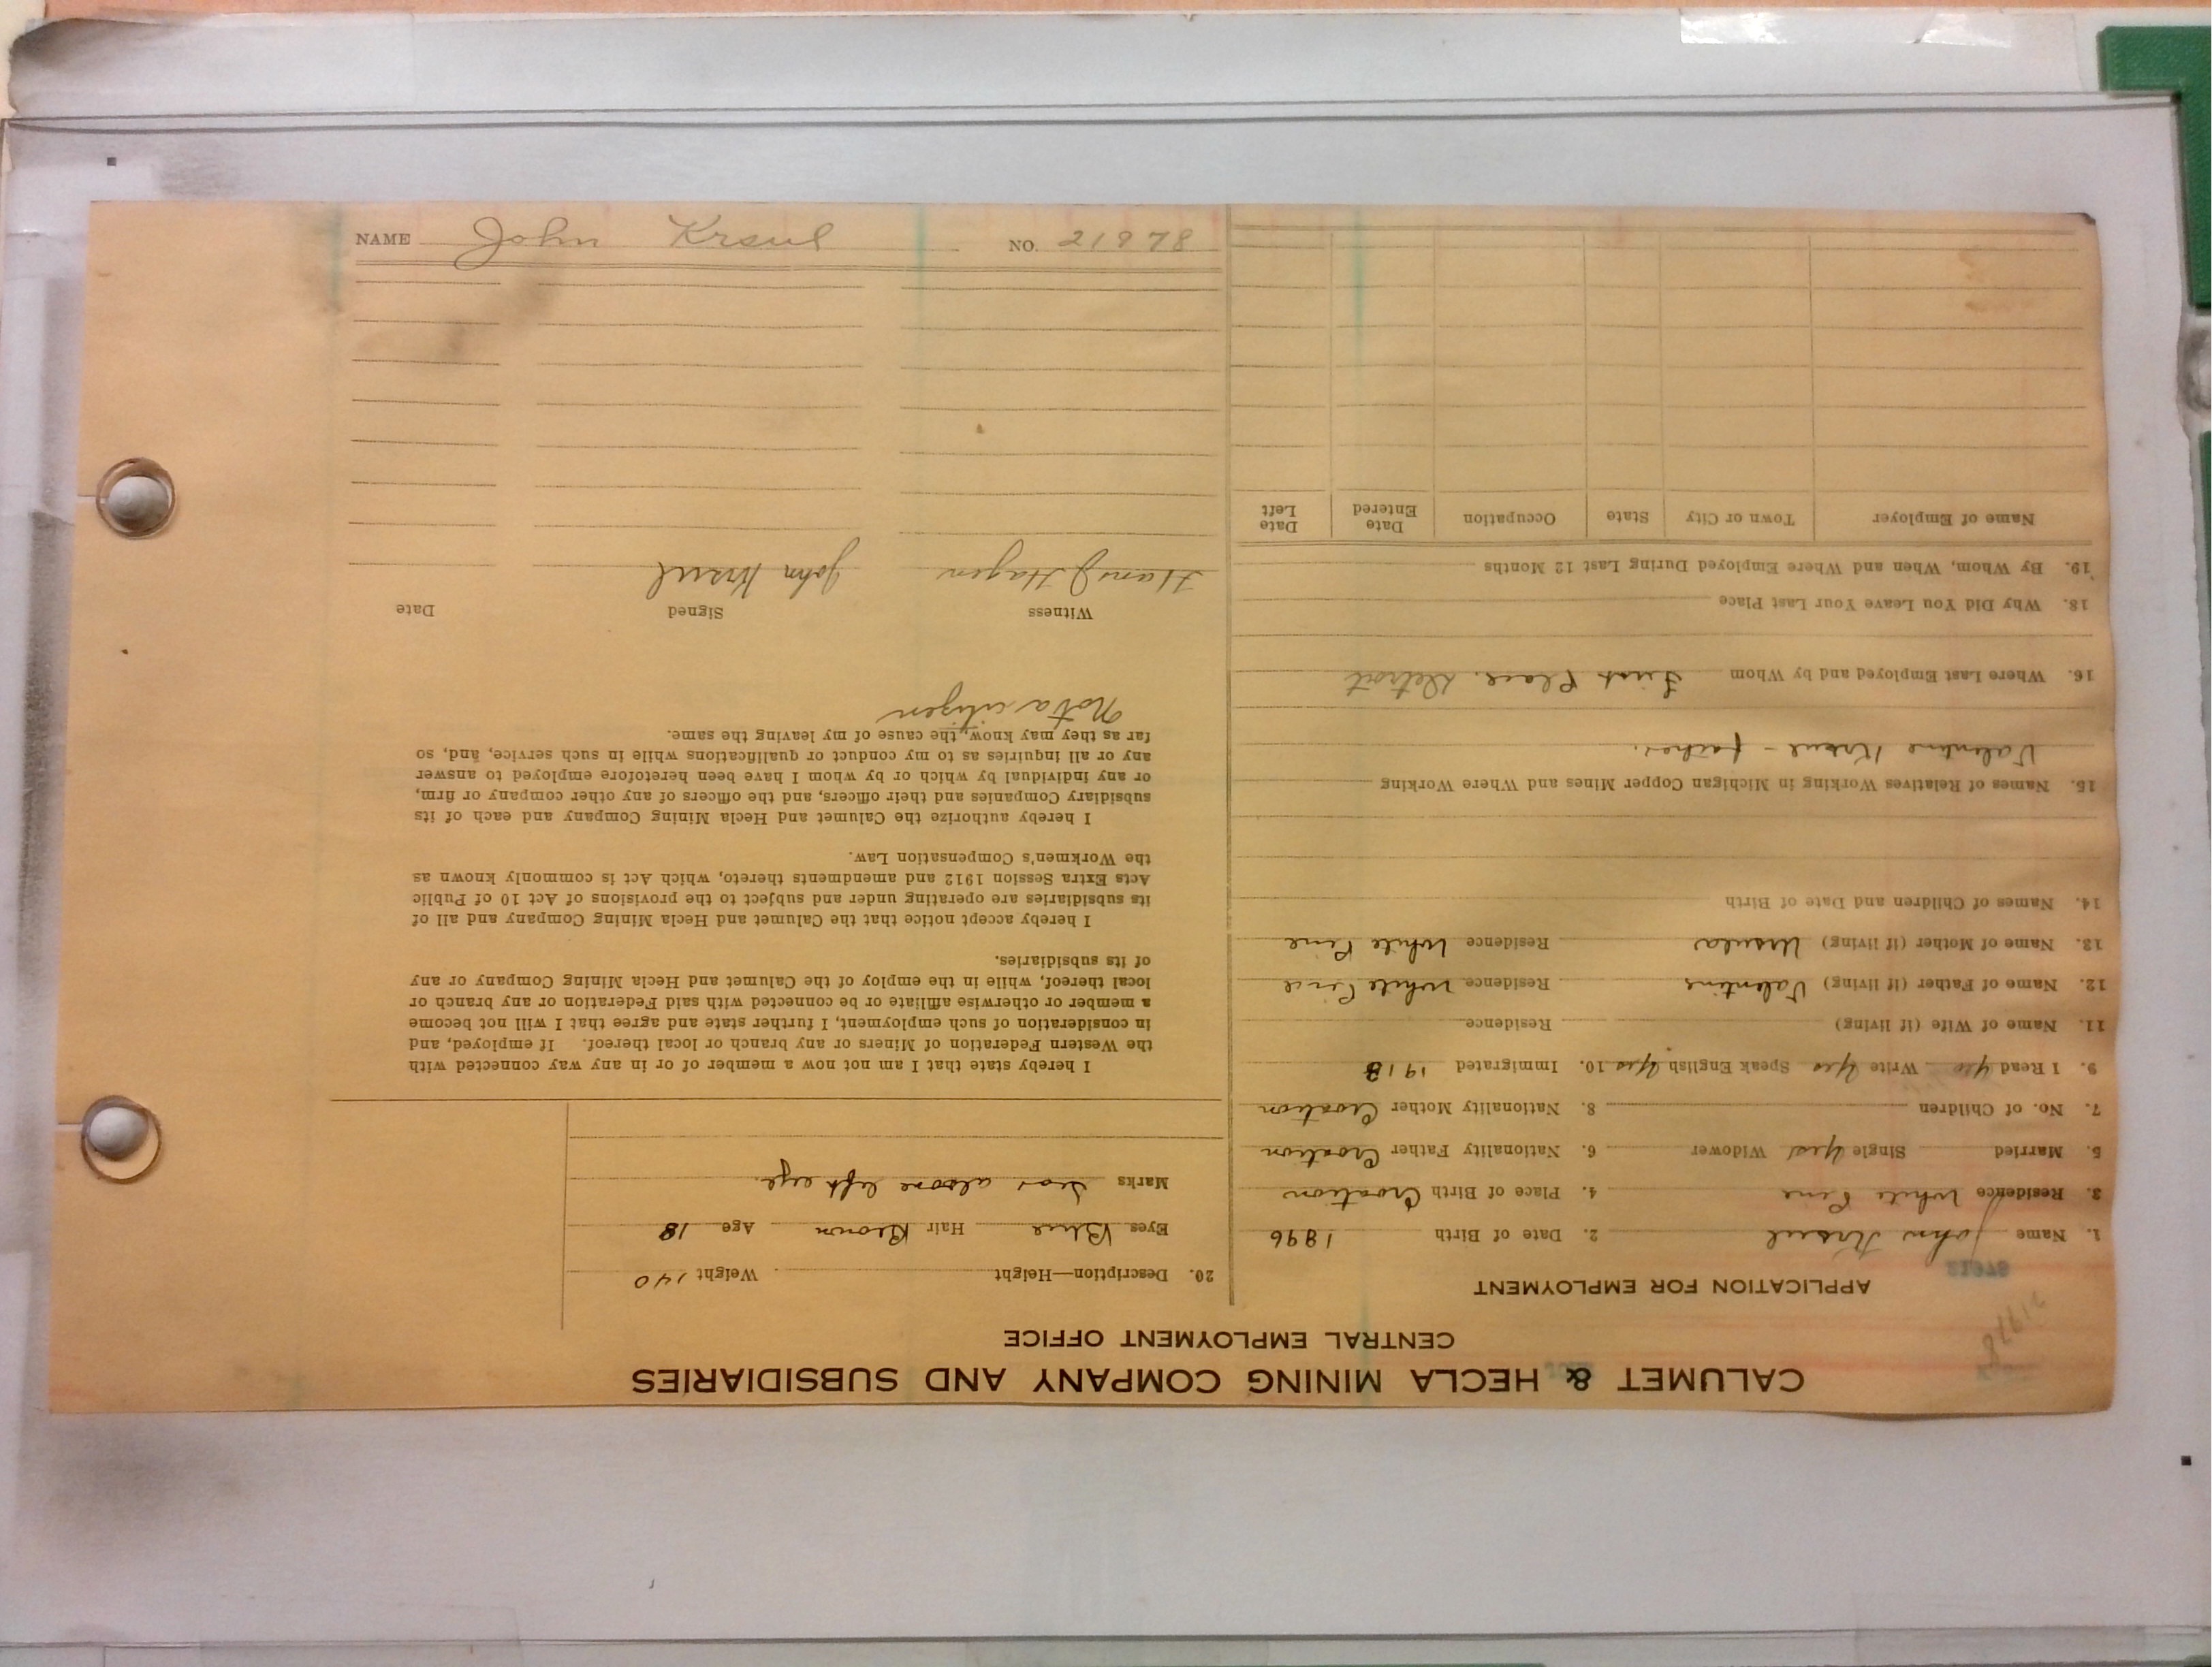 CALUMET & HECLA MINING COMPANY AND SUBSIDIARIES
CENTRAL EMPLOYMENT OFFICE
21978
APPLICATION FOR EMPLOYMENT
1. Name John Krsul 2. Date of Birth 1896
3. Residence White Pine 4. Place of Birth Croation
5. Married Single Yes Widower 6. Nationality Father Croation
7. No. of Children 8. Nationality Mother Croation
9. I Read Yes Write Yes Speak English Yes 10. Immigrated 1913
11. Name of Wife (if living) Residence
12. Name of Father (if living) Valentine Residence White Pine
13. Name of Mother (if living) Ursula Residence White Pine
14. Names of Children and Date of Birth
15. Names of Relatives Working in Michigan Copper Mines and Where Working
Valentine Krsul - father.
16. Where Last Employed and by Whom First Place. Detroit
18. Why Did You Leave Your Last Place
19. By Whom, When and Where Employed During Last 12 Months
Name of Employer Town or City State Occupation Date Entered Date Left
20. Description—Height Weight 140
Eyes Blue Hair Brown Age 18
Marks Scar above left eye.
I hereby state that I am not now a member of or in any way connected with
the Western Federation of Miners or any branch or local thereof. If employed, and
in consideration of such employment, I further state and agree that I will not become
a member or otherwise affiliate or be connected with said Federation or any branch or
local thereof, while in the employ of the Calumet and Hecla Mining Company or any
of its subsidiaries.
I hereby accept notice that the Calumet and Hecla Mining Company and all of
its subsidiaries are operating under and subject to the provisions of Act 10 of Public
Acts Extra Session 1912 and amendments thereto, which Act is commonly known as
the Workmen's Compensation Law.
I hereby authorize the Calumet and Hecla Mining Company and each of its
subsidiary Companies and their officers, and the officers of any other company or firm,
or any individual by which or by whom I have been heretofore employed to answer
any or all inquiries as to my conduct or qualifications while in such service, and, so
far as they may know, the cause of my leaving the same.
Not a citizen
Witness Signed Date
Hans J Hagen John Krsul
NAME John Krsul NO. 21978